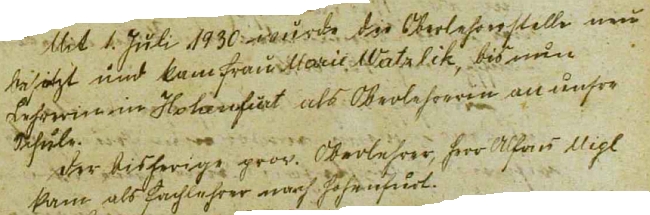 Mit 1. Juli 1930 wurde die Oberlehrerstelle neu
besetzt und kam Frau Marie Watzlik, bis nun
Lehrerin in Hohenfurt als Oberlehrerin an unsre
Schule.
Der bisherige prov. Oberlehrer, Herr Alfons Migl
kam als Fachlehrer nach Hohenfurt.